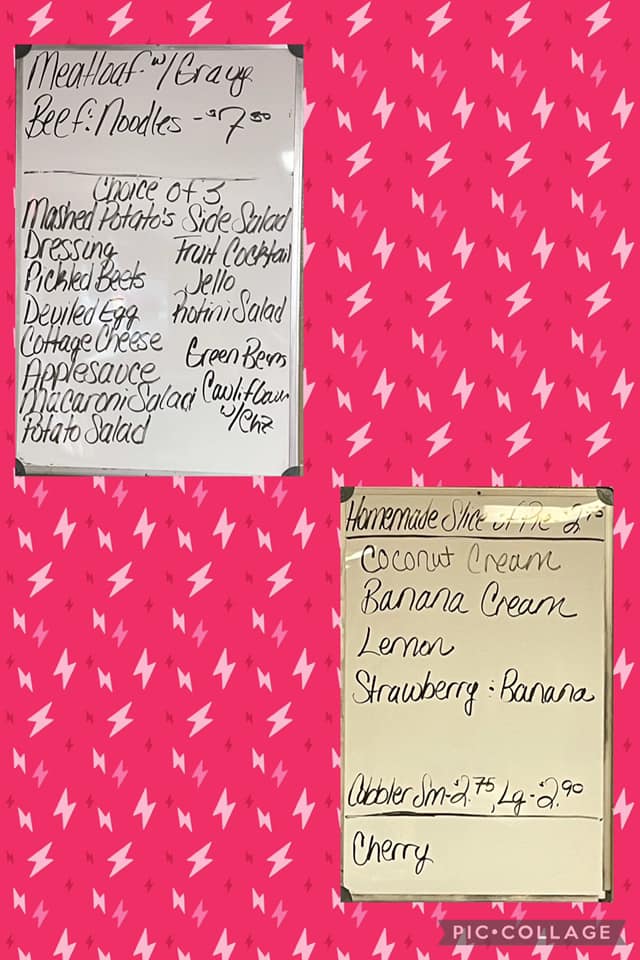 Meatloaf w/Gravy
Beef : Noodles - $7.50
Choice of 3
Mashed Potato's Side Salad
Dressing Fruit Cocktail
Pickled Beets Jello
Deviled Egg Rotini Salad
Cottage Cheese Green Beans
Applesauce Cauliflower
Macaroni Salad w/Chz
Potato Salad
Homemade Slice of Pie
Coconut Cream
Banana Cream
Lemon
Strawberry : Banana
Cobbler Sm-$2.75, Lg-$2.90
Cherry
PIC•COLLAGE